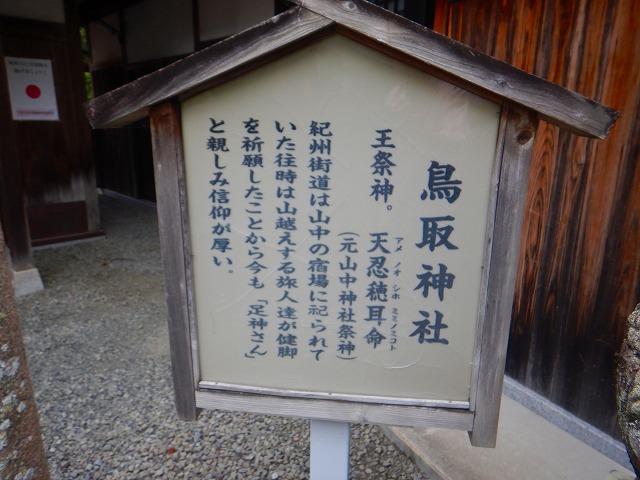 鳥取神社
王祭神。 天忍穂耳命
アメノオシホミミノミコト
(元山中神社祭神)
紀州街道は山中の宿場に祀られて
いた往時は山越えする旅人達が健脚
を祈願したことから今も「足神さん」
と親しみ信仰が厚い。